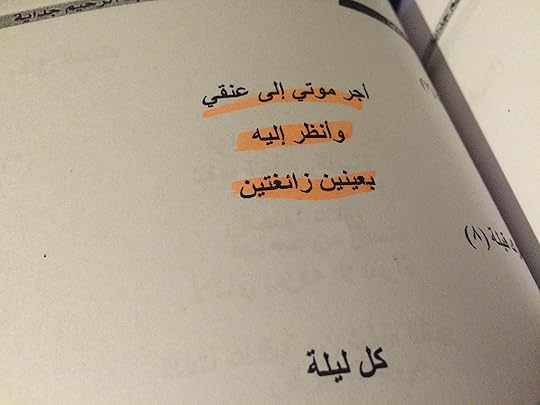 الرحيم جداية
أجر موتي إلى عنقي
وأنظر إليه
بعينين زائغتين
(٨)
كل ليلة